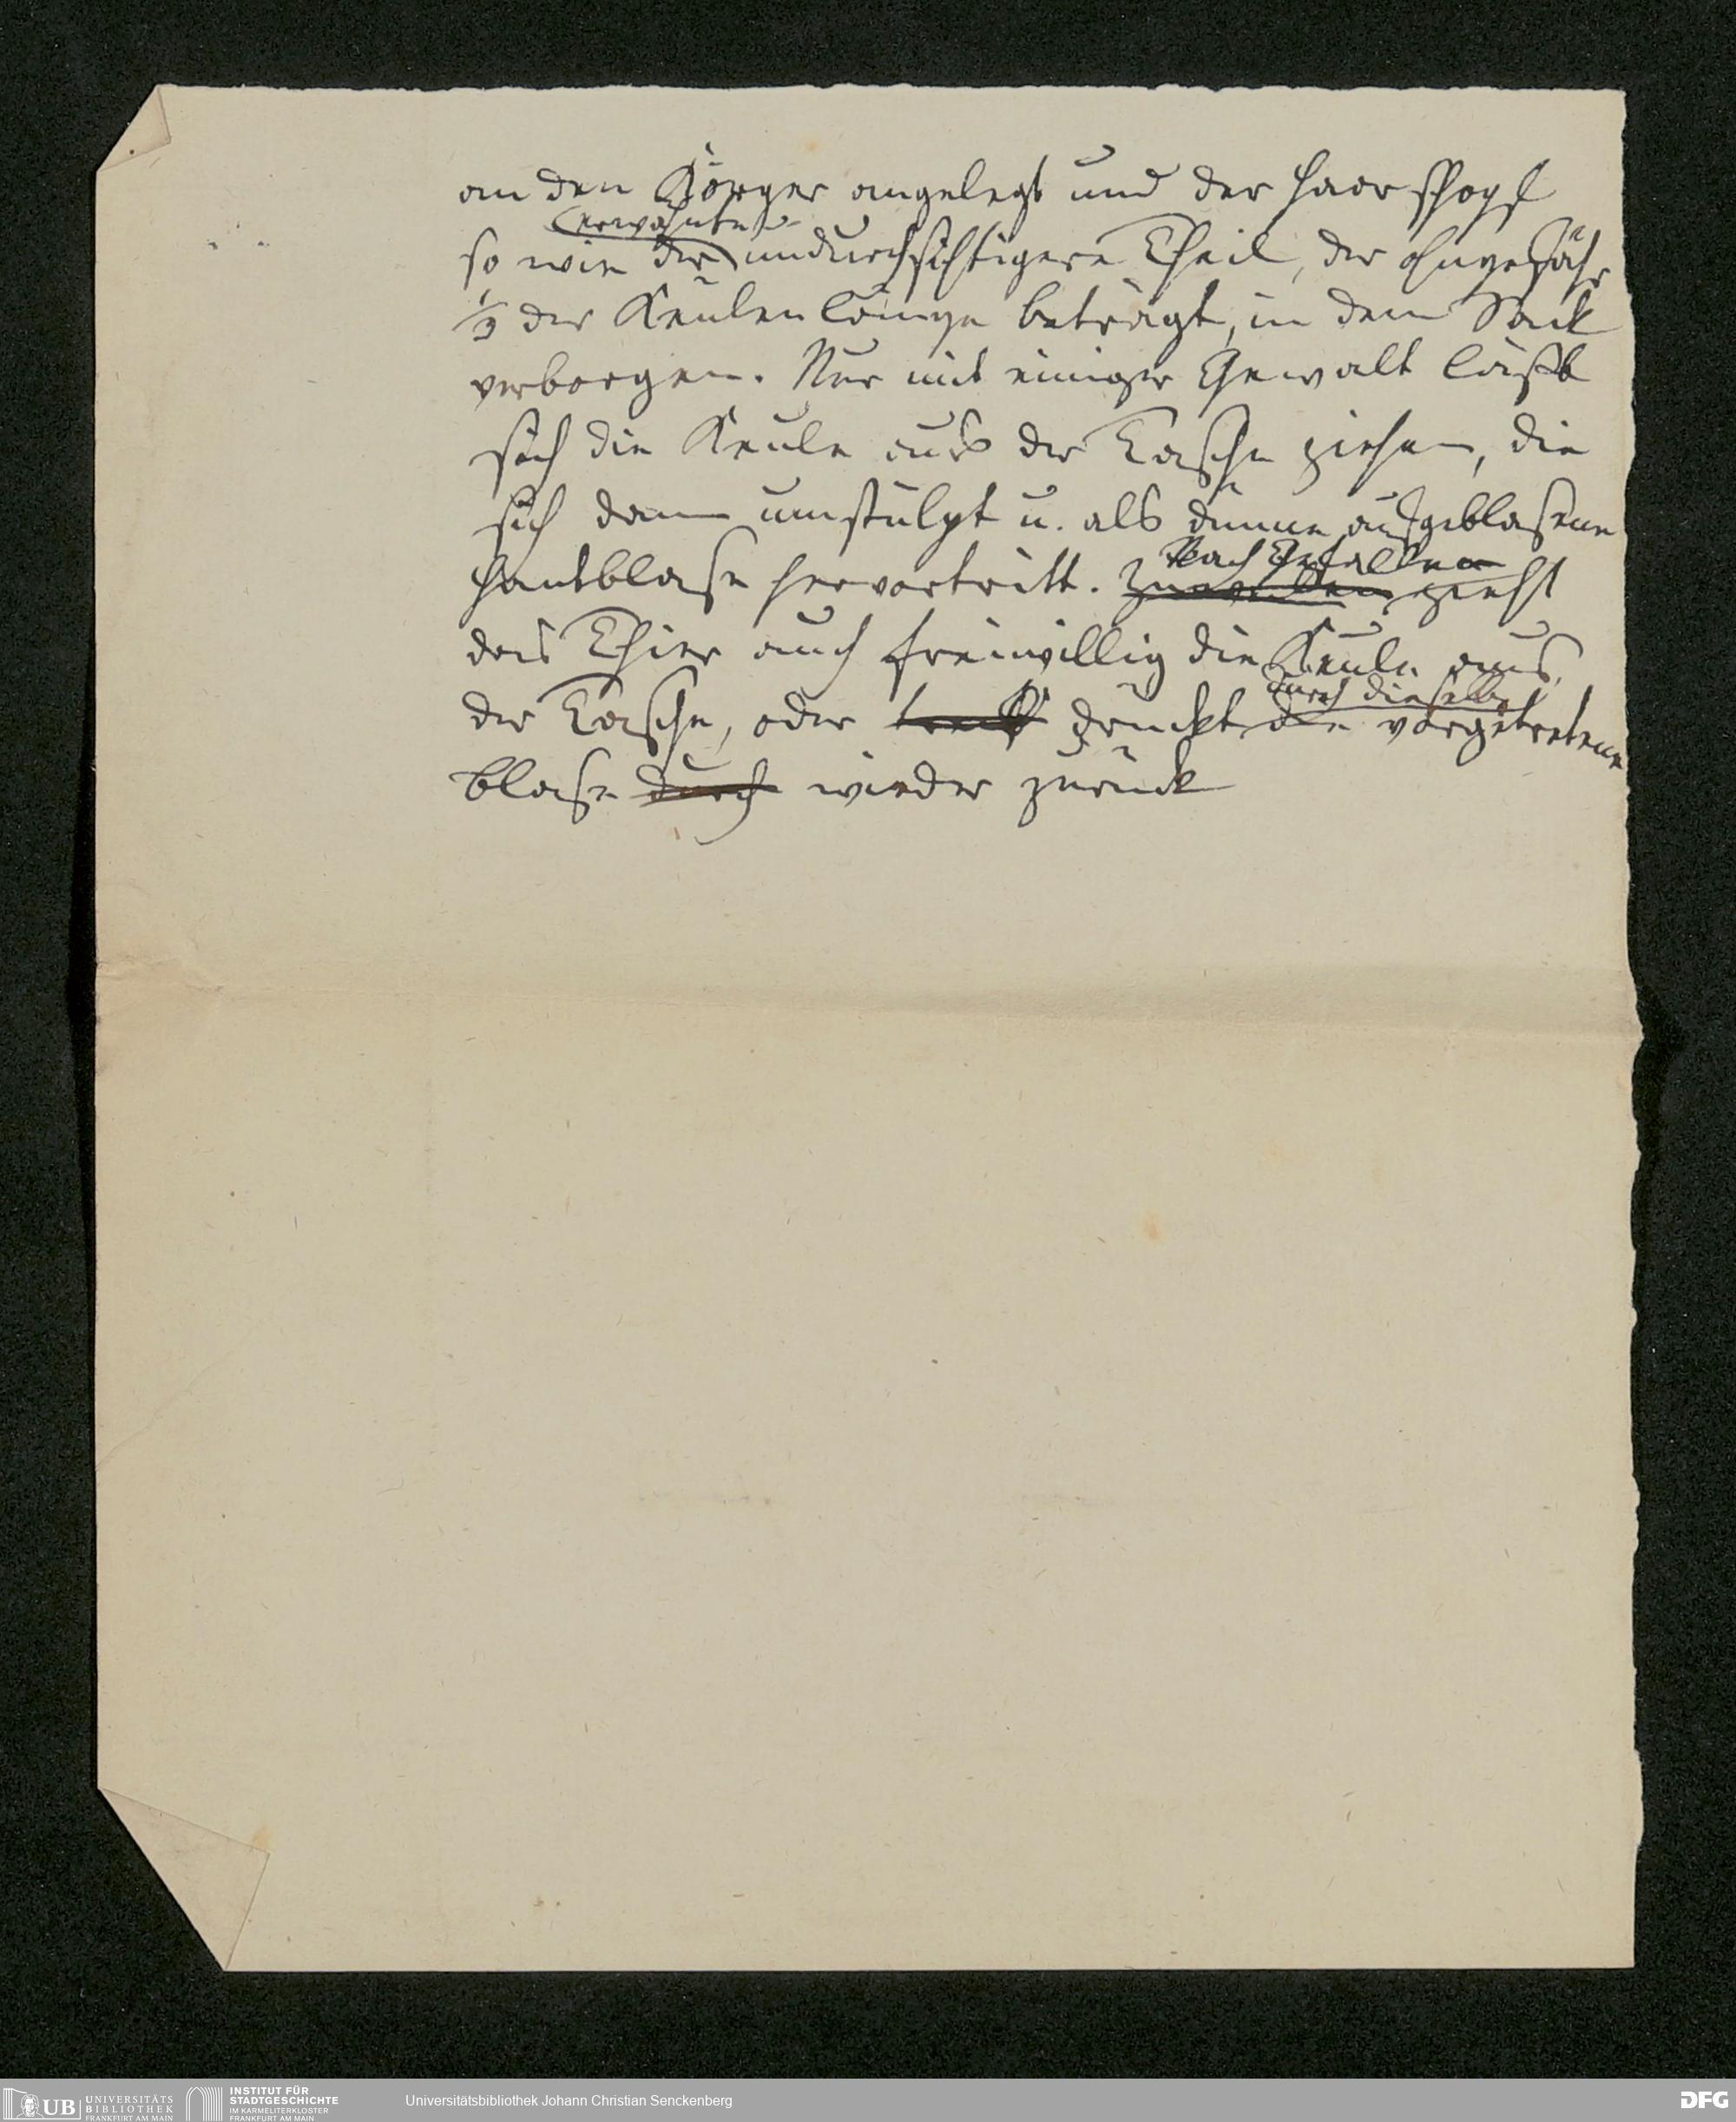 an den Körper angelegt und der Haarschopf
erwähnte
so wie der undurchsichtigere Theil, der ohngefähr
1/3 der Keulenlänge beträgt, in dem Sack
verborgen. Nur mit einiger Gewalt läßt
sich die Keule aus der Tasche ziehen, die
sich dann umstülpt u. als dünne aufgeblasene
Hautblase hervortritt. Nach Gefallen
zuweilen zieht
das Thier auch freiwillig die Keule aus
der Tasche, oder drückt durch dieselbe die vorgetretene
Blase durch wieder zurück
UB UNIVERSITÄTS BIBLIOTHEK FRANKFURT AM MAIN
INSTITUT FÜR STADTGESCHICHTE IM KARMELITERKLOSTER FRANKFURT AM MAIN
Universitätsbibliothek Johann Christian Senckenberg
DFG